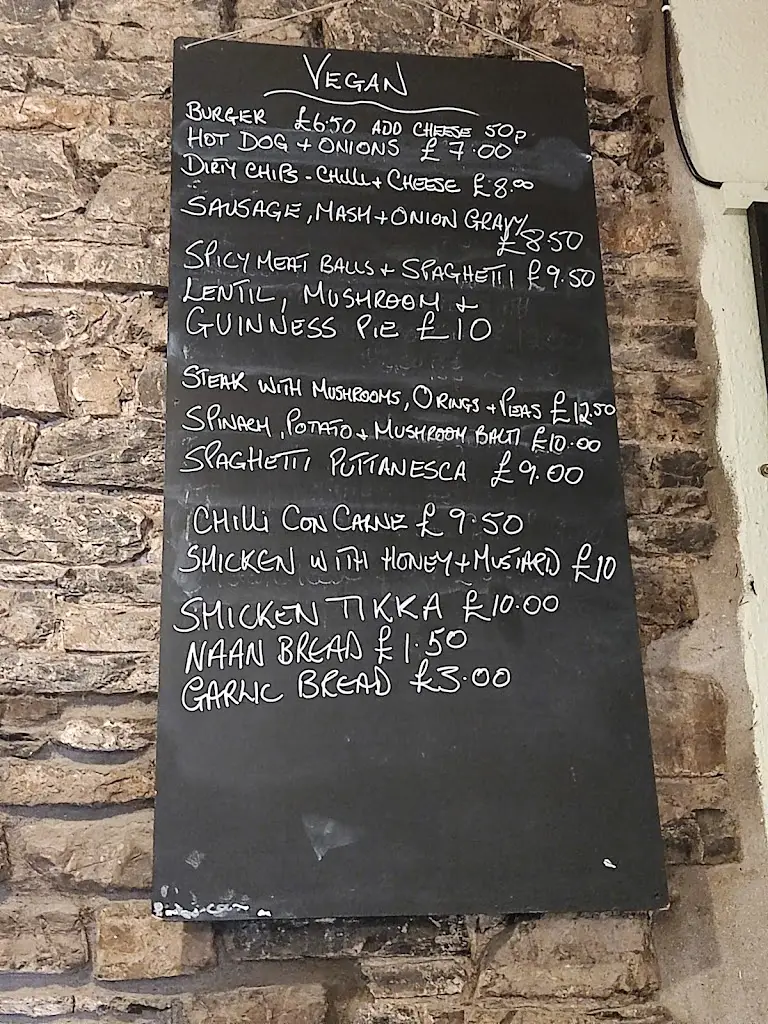 VEGAN
BURGER £6.50 ADD CHEESE 50p
HOT DOG + ONIONS £7.00
DIRTY CHIPS - CHILLI + CHEESE £8.00
SAUSAGE, MASH + ONION GRAVY
£8.50
SPICY MEAT BALLS + SPAGHETTI £9.50
LENTIL, MUSHROOM +
GUINNESS PIE £10
STEAK WITH MUSHROOMS, O RINGS + PEAS £12.50
SPINACH, POTATO + MUSHROOM BALTI £10.00
SPAGHETTI PUTTANESCA £9.00
CHILLI CON CARNE £9.50
SHICKEN WITH HONEY + MUSTARD £10
SHICKEN TIKKA £10.00
NAAN BREAD £1.50
GARLIC BREAD £3.00